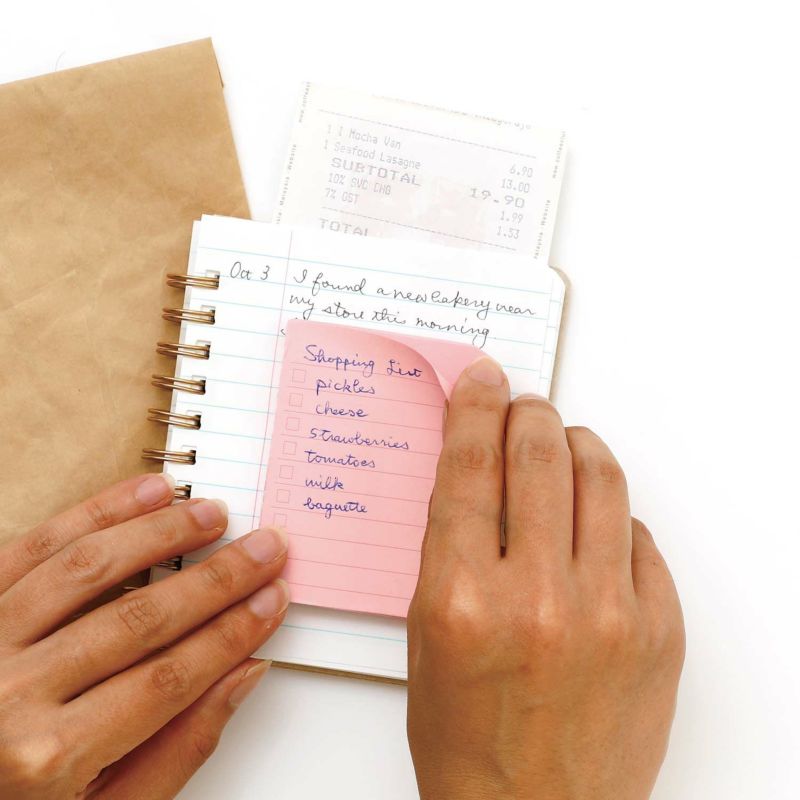 1 1 Mocha Van 6.90
1 Seafood Lasagne 13.00
SUBTOTAL 19.90
10% SVC CHG 1.99
7% GST 1.53
TOTAL
Malaysia Website
Website
Oct 3 I found a new bakery near
my store this morning.
Shopping List
pickles
cheese
strawberries
tomatoes
milk
baguette